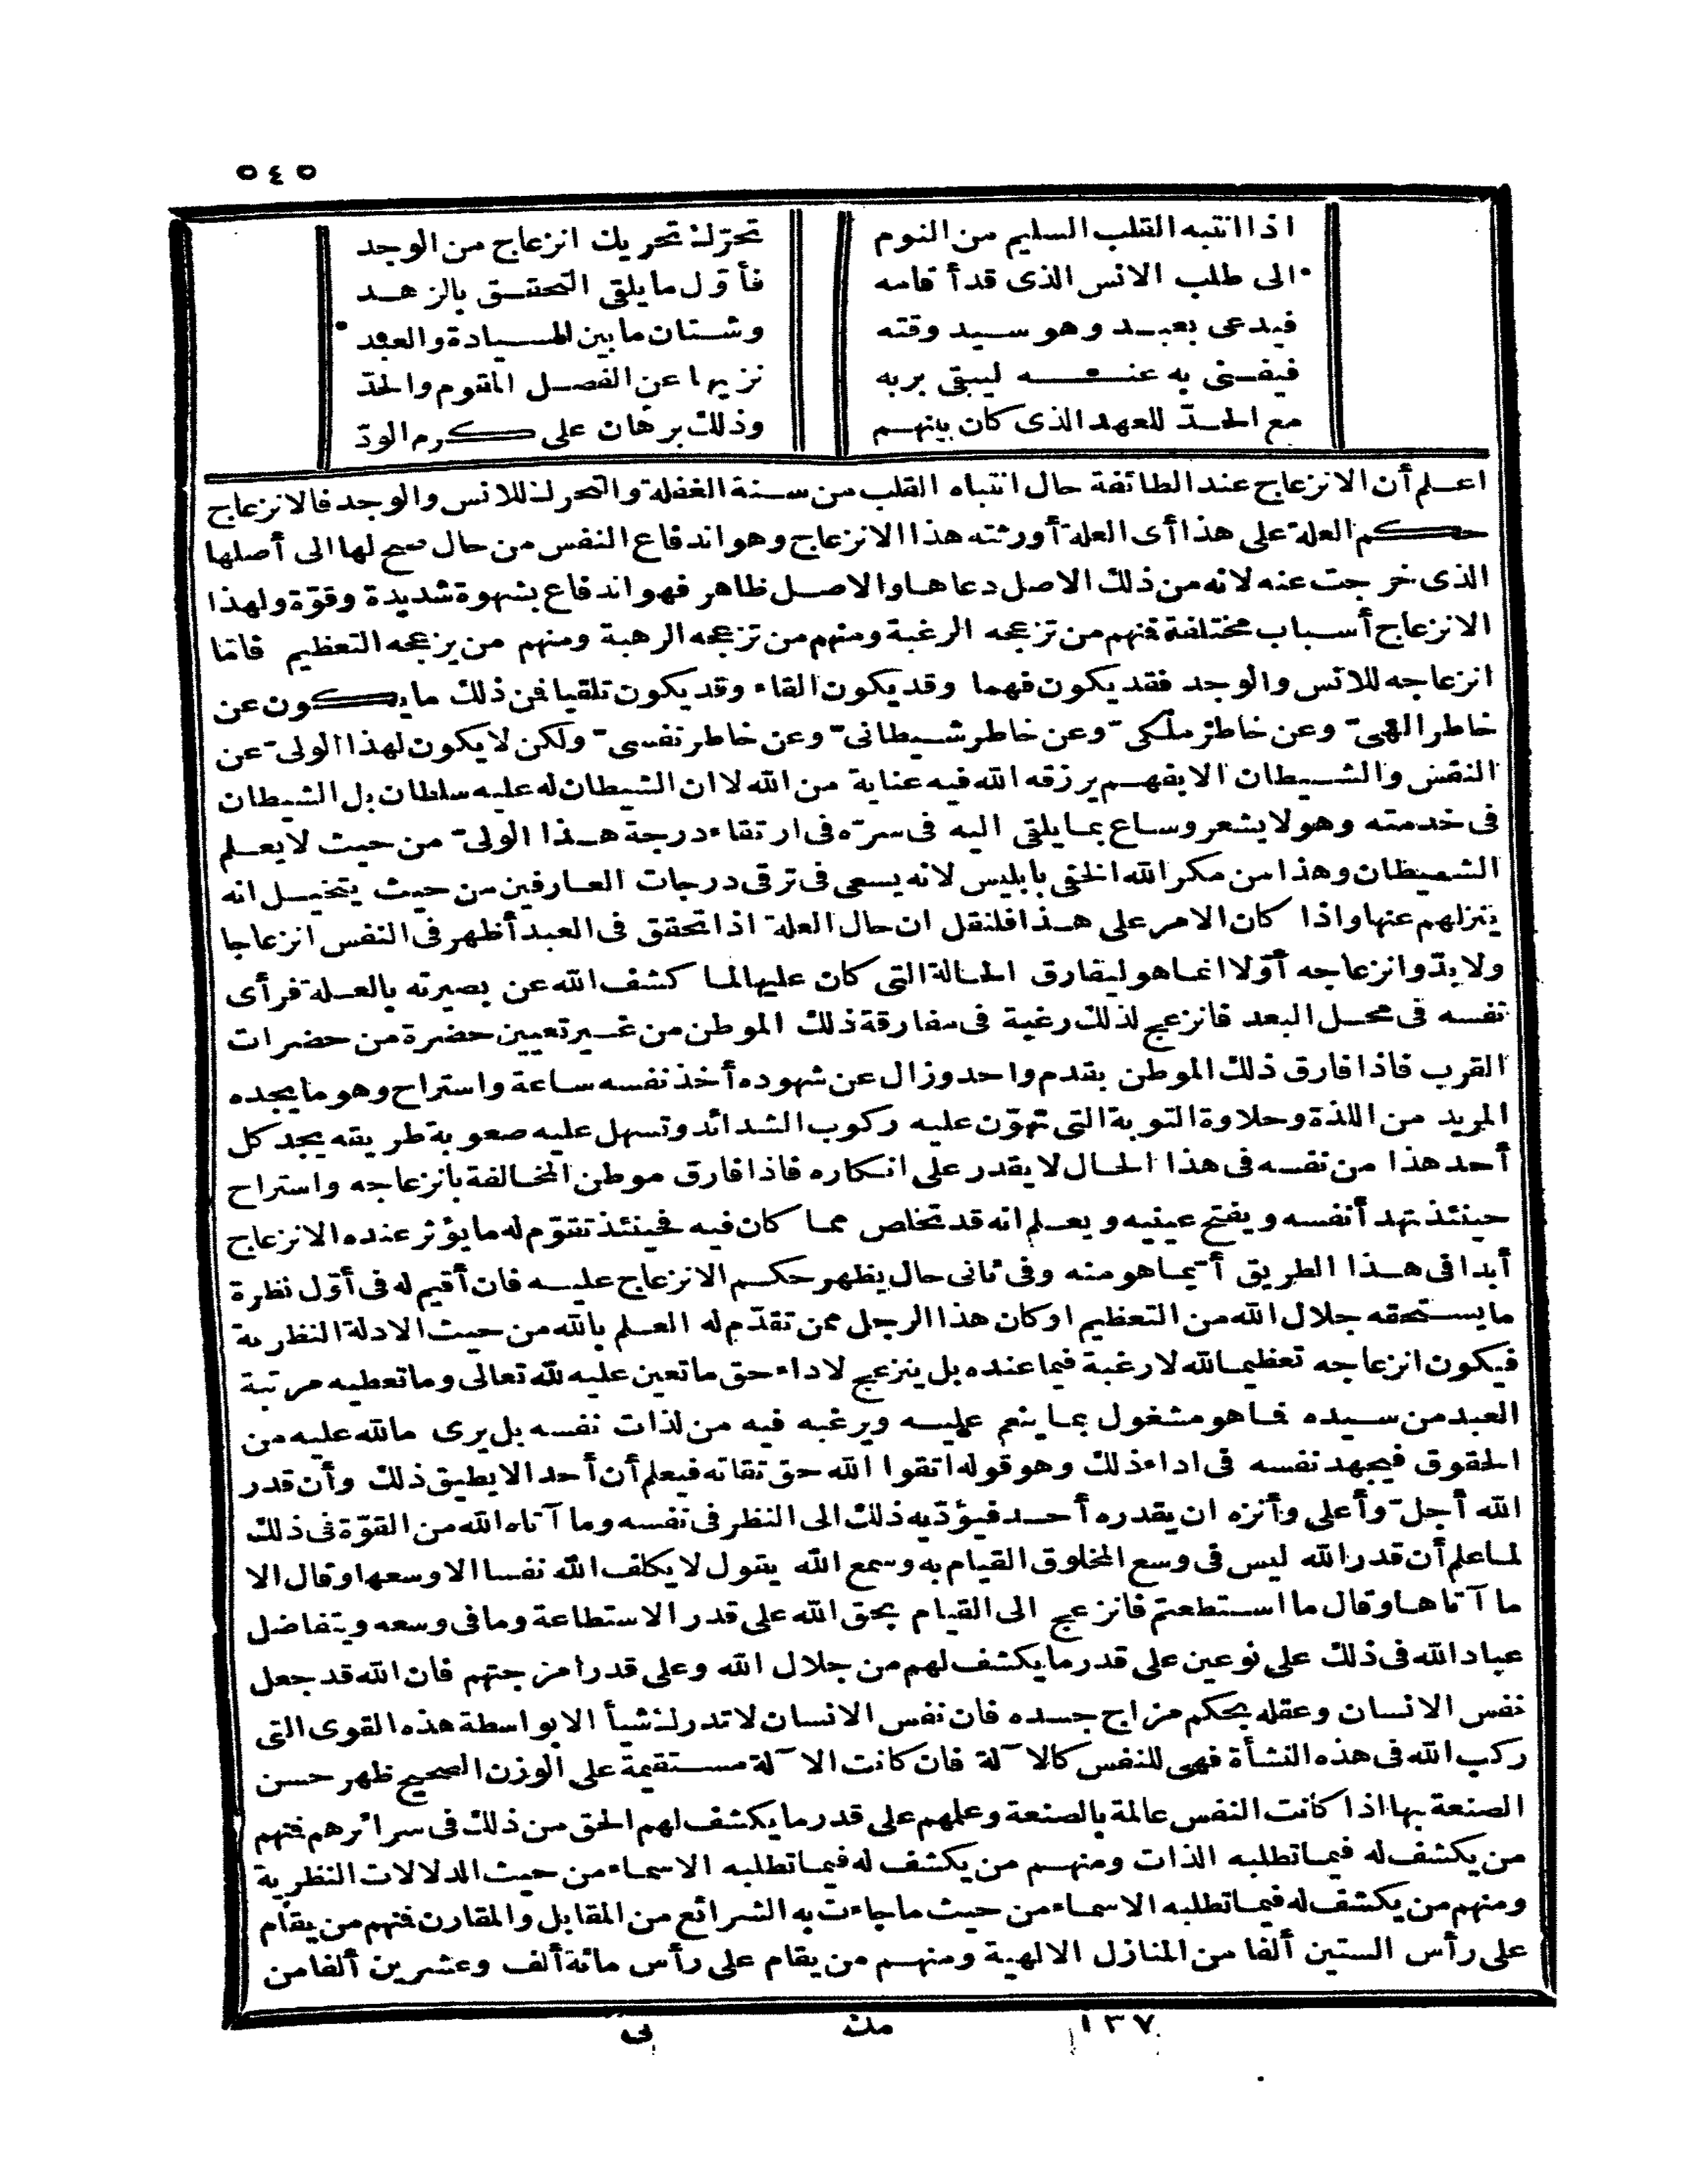 ٥٤٥
اذا انتبه القلب السليم من النوم تحرّك تحريك انزعاج من الوجد
الى طلب الانس الذى قد أقامه فأوّل ما يلقى التحقق بالزهد
فيدعى بعبد وهو سيد وقته وشتان ما بين السيادة والعبد
فيفنى به عنه ليبقى بربه نزيها عن الفصل المقوم والحدّ
مع الحدّ للعهد الذى كان بينهم وذلك برهان على كرم الودّ
اعلم أن الانزعاج عند الطائفة حال انتباه القلب من سنة الغفلة والتحرك للانس والوجد فالانزعاج
حكم العلة على هذا أى العلة أورثته هذا الانزعاج وهو اندفاع النفس من حال صح لها الى أصلها
الذى خرجت عنه لانه من ذلك الاصل دعاها والاصل ظاهر فهو اندفاع بشهوة شديدة وقوّة ولهذا
الانزعاج أسباب مختلفة فمنهم من تزعجه الرغبة ومنهم من تزعجه الرهبة ومنهم من يزعجه التعظيم فامّا
انزعاجه للانس والوجد فقد يكون فهما وقد يكون القاء وقد يكون تلقيا فمن ذلك ما يكون عن
خاطر الهىّ وعن خاطر ملكىّ وعن خاطر شيطانىّ وعن خاطر نفسىّ ولكن لا يكون لهذا الولىّ عن
النفس والشيطان الا بفهم يرزقه الله فيه عناية من الله لا ان الشيطان له عليه سلطان بل الشيطان
فى خدمته وهو لا يشعر وساع بما يلقى اليه فى سرّه فى ارتقاء درجة هذا الولىّ من حيث لا يعلم
الشيطان وهذا من مكر الله الخفى بابليس لانه يسعى فى ترقى درجات العارفين من حيث يتخيل انه
ينزلهم عنها واذا كان الامر على هذا فلنقل ان حال العلة اذا تحقق فى العبد أظهر فى النفس انزعاجا
ولا بدّ وانزعاجه أوّلا انما هو ليفارق الحالة التى كان عليها لما كشف الله عن بصيرته بالعلة فرأى
نفسه فى محل البعد فانزعج لذلك رغبة فى مفارقة ذلك الموطن من غير تعيين حضرة من حضرات
القرب فاذا فارق ذلك الموطن بقدم واحد وزال عن شهوده أخذ نفسه ساعة واستراح وهو ما يجده
المريد من اللذة وحلاوة التوبة التى تهوّن عليه ركوب الشدائد وتسهل عليه صعوبة طريقه يجد كل
أحد هذا من نفسه فى هذا الحال لا يقدر على انكاره فاذا فارق موطن المخالفة بانزعاجه واستراح
حينئذ تهدأ نفسه ويفتح عينيه ويعلم انه قد تخلص مما كان فيه فحينئذ تتقوّم له ما يؤثر عنده الانزعاج
أبدا فى هذا الطريق أتيما هو منه وفى ثانى حال يظهر حكم الانزعاج عليه فان أقيم له فى أوّل نظرة
ما يستحقه جلال الله من التعظيم او كان هذا الرجل ممن تقدّم له العلم بالله من حيث الادلة النظرية
فيكون انزعاجه تعظيما لله لا رغبة فيما عنده بل ينزعج لاداء حق ما تعين عليه لله تعالى وما تعطيه مرتبة
العبد من سيده فما هو مشغول بما ينعم عليه ويرغبه فيه من لذات نفسه بل يرى ما لله عليه من
الحقوق فيجهد نفسه فى اداء ذلك وهو قوله اتقوا الله حق تقاته فيعلم أن أحد الا يطيق ذلك وأن قدر
الله أجلّ وأعلى وأنزه ان يقدره أحد فيؤدّيه ذلك الى النظر فى نفسه وما آتاه الله من القوّة فى ذلك
لما علم أن قدر الله ليس فى وسع المخلوق القيام به وسمع الله يقول لا يكلف الله نفسا الا وسعها وقال الا
ما آتاها وقال ما استطعتم فانزعج الى القيام بحق الله على قدر الاستطاعة وما فى وسعه ويتفاضل
عباد الله فى ذلك على نوعين على قدر ما يكشف لهم من جلال الله وعلى قدر امزجتهم فان الله قد جعل
نفس الانسان وعقله بحكم مزاج جسده فان نفس الانسان لا تدرك شيأ الا بواسطة هذه القوى التى
ركب الله فى هذه النشأة فهى للنفس كالآلة فان كانت الآلة مستقيمة على الوزن الصحيح ظهر حسن
الصنعة بها اذا كانت النفس عالمة بالصنعة وعلمهم على قدر ما يكشف لهم الحق من ذلك فى سرائرهم فمنهم
من يكشف له فيما تطلبه الذات ومنهم من يكشف له فيما تطلبه الاسماء من حيث الدلالات النظرية
ومنهم من يكشف له فيما تطلبه الاسماء من حيث ما جاءت به الشرائع من المقابل والمقارن فمنهم من يقام
على رأس الستين ألفا من المنازل الالهية ومنهم من يقام على رأس مائة ألف وعشرين ألفا من
١٣٧ مك نى